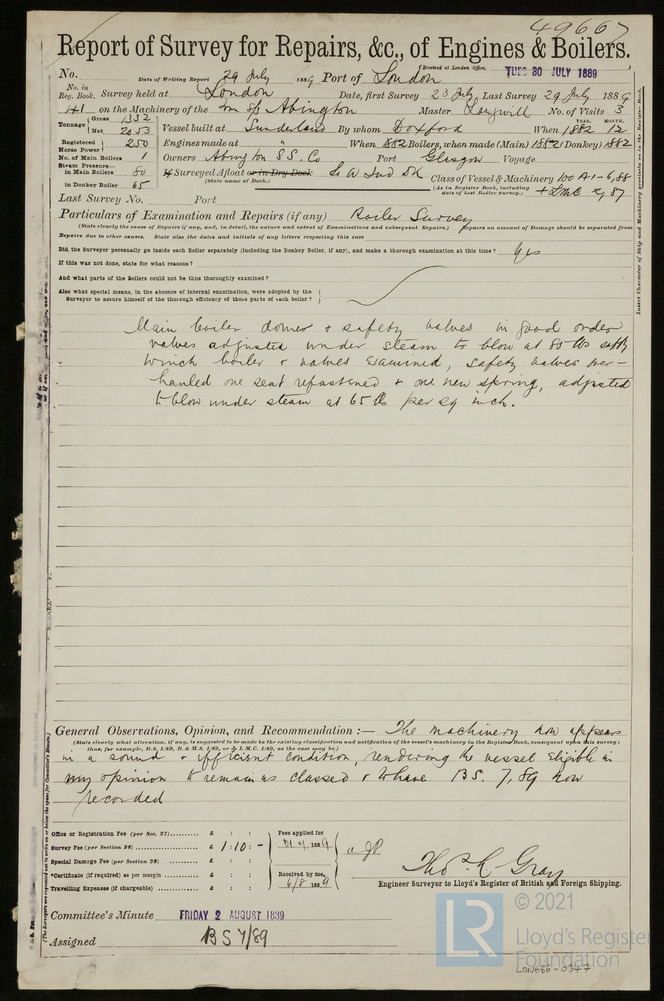 49667
Report of Survey for Repairs, &c., of Engines & Boilers.
(Received at London Office, TUES 30 JULY 1889
No. Date of Writing Report 29 July 1889 Port of London
No. in Reg. Book. Survey held at London Date, first Survey 23 July Last Survey 29 July 1889
41 on the Machinery of the S/S Abington Master No. of Visits 3
Tonnage Gross 1332 Net 2053 Vessel built at Sunderland By whom Doxford When 1882 YEAR. MONTH. 12
Registered Horse Power 250 Engines made at " When 1882 Boilers, when made (Main) 1882 (Donkey) 1882
No. of Main Boilers 1 Owners Abington S.S. Co Port Glasgow Voyage
Steam Pressure— in Main Boilers 80 If Surveyed Afloat or in Dry Dock So W Ind Dk Class of Vessel & Machinery 100 A1-6,88
(State name of Dock.) (As in Register Book, including date of last Boiler survey.) + LMC 2,87
in Donkey Boiler 65
Last Survey No. Port
Particulars of Examination and Repairs (if any) Boiler Survey
(State clearly the cause of Repairs if any, and, in detail, the nature and extent of Examinations and subsequent Repairs.) Repairs on account of Damage should be separated from
Repairs due to other causes. State also the dates and initials of any letters respecting this case
Did the Surveyor personally go inside each Boiler separately (including the Donkey Boiler, if any), and make a thorough examination at this time? Yes
If this was not done, state for what reasons?
And what parts of the Boilers could not be thus thoroughly examined?
Also what special means, in the absence of internal examination, were adopted by the
Surveyor to assure himself of the thorough efficiency of those parts of each boiler?
Main boiler domes + safety valves in good order
valves adjusted under steam to blow at 80 lbs
winch boiler + valves examined, safety valves over-
hauled one seat refastened + one new spring, adjusted
to blow under steam at 65 lb per sq inch.
General Observations, Opinion, and Recommendation :— The machinery now appears
(State clearly what alteration, if any, is suggested to be made in the existing classification and notification of the vessel's machinery in the Register Book, consequent upon this survey;
thus, for example, B.S. 1/89, B.& M.S. 1/89, or + L.M.C. 1/89, as the case may be.)
in a sound + efficient condition, rendering the vessel eligible in
my opinion to remain as classed + to have BS. 7,89 now
recorded
Office or Registration Fee (per Sec. 27)......... £ : :
Survey Fee (per Section 28)............ £ 1 : 10 : -
Special Damage Fee (per Section 28)...... £ : :
Certificate (if required) as per margin ...... £ : :
Travelling Expenses (if chargeable) ......... £ : :
Fees applied for 1889
Received by me, 6/8 1889
Thos. C Gray
Engineer Surveyor to Lloyd's Register of British and Foreign Shipping.
Committee's Minute FRIDAY 2 AUGUST 1889
Assigned BS 7/89
LR
© 2021
Lloyd's Register
Foundation
LON686-0347
Insert Character of Ship and Machinery precisely as in the Register Book.